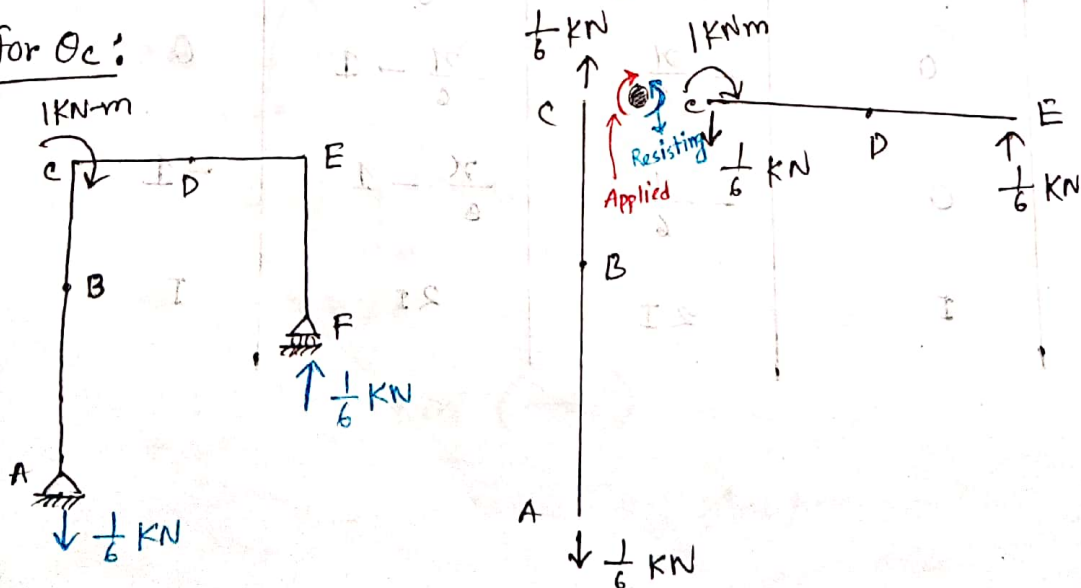 for θc:
1KN-m
C
D
E
B
F
A
↑ 1/6 KN
↓ 1/6 KN
1/6 KN
↑
C
1KNm
C
Resisting
Applied
↓ 1/6 KN
D
E
↑ 1/6 KN
B
A
↓ 1/6 KN